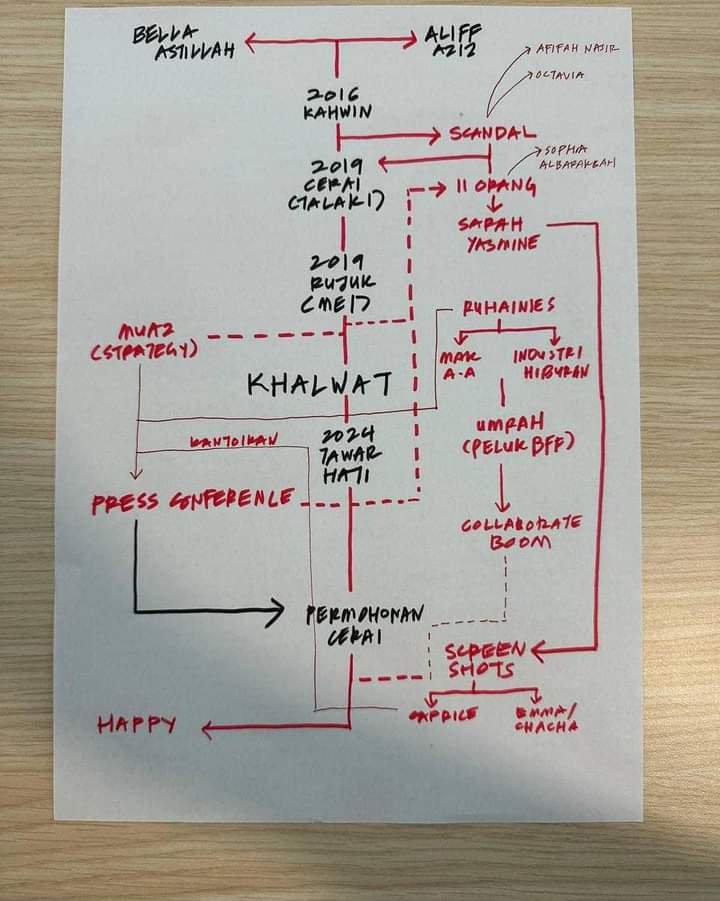 BELLA
ASTILLAH
ALIFF
AZIZ
AFIFAH NASIR
OCTAVIA
2016
KAHWIN
SCANDAL
SOPHIA
ALBARAKBAH
2019
CERAI
(TALAK 1)
11 ORANG
SARAH
YASMINE
2019
RUJUK
(MEI)
RUHAINIES
MUAZ
(STRATEGY)
MAK
A-A
INDUSTRI
HIBURAN
KHALWAT
UMRAH
(PELUK BFF)
KANTOIKAN
2024
TAWAR
HATI
PRESS CONFERENCE
COLLABORATE
BOOM
PERMOHONAN
CERAI
SCREEN
SHOTS
HAPPY
CAPRICE
EMMA/
CHACHA